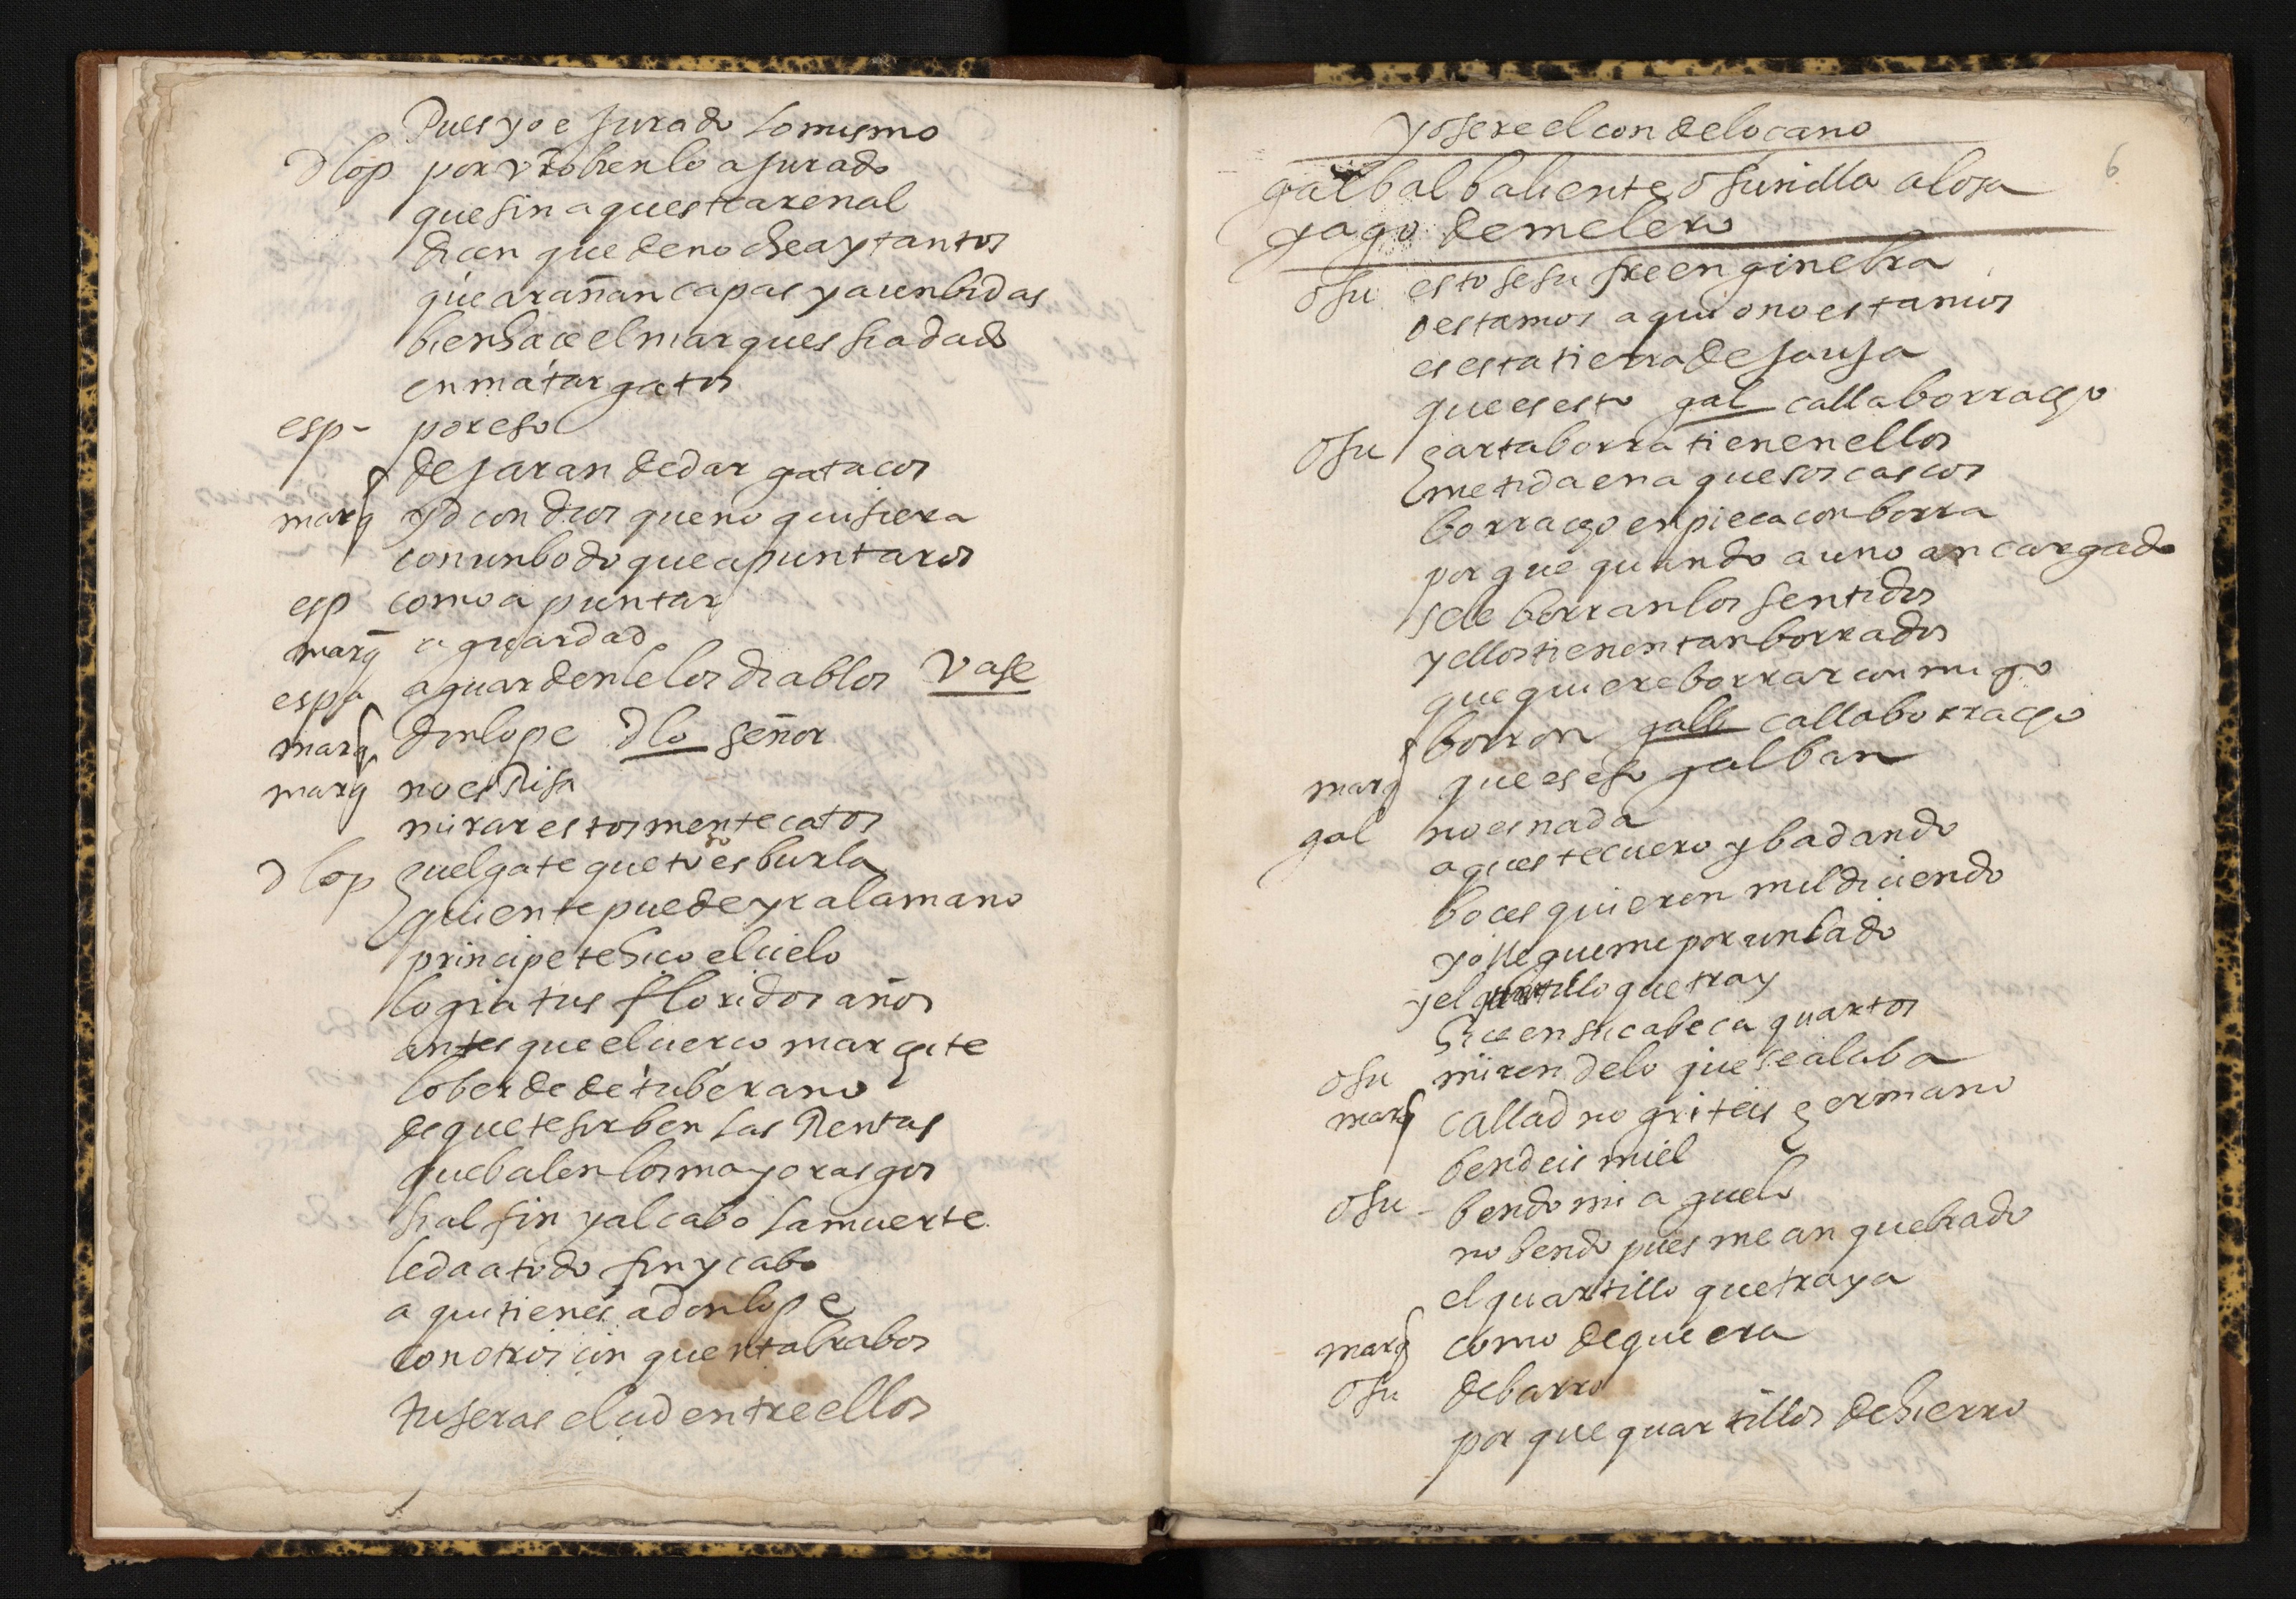 Pues yo e jurado lo mismo
d lop por vro bien lo a jurado
que sin aqueste arenal
dicen que de noche ay tantos
que arañan capas y aun bidas
bien hace el marques si a dado
en matar gatos
esp - por eso
dejaran de dar gatacos
marq yd con dios que no quisiera
con un bodoque apuntaros
esp como apuntar
marq aguardad
espa aguardenle los diablos vase
marq don lope d lo señor
marq no es Risa
mirar estos mentecatos
d lop huelgate que to no es burla
quien te puede yr a la mano
principe te hico el cielo
logra tus floridos años
antes que el cierco marchite
lo berde de tu berano
de que te sirben las Rentas
que balen los mayorasgos
si al fin y al cabo la muerte
le da a todo fin y cabo
aqui tienes a don lope
con otros cinquenta brabos
tu seras el cid entre ellos
yo sere el conde locano
6
galbal baliente osunilla a losa
yago de melero
osu esto se sufre en ginebra
o estamos aqui o no estamos
es esta tierra de jauja
que es esto gal calla borracho
osu harta borra tienen ellos
metida en aquesos cascos
borracho enpieca con borra
por que quando a uno an cargado
se le borran los sentidos
y ellos tienen tan borrados
que quiere borrar conmigo
borron galb calla borracho
marq que es eso galban
gal no es nada
aqueste cuero y badando
boces quieren mil diciendo
yo llegueme por un lado
y el quartillo que tray
hice en su cabeca quartos
osu miren de lo que se alaba
marq callad no griteis hermano
bendeis miel
osu - bendo mi aguelo
no bendo pues me an quebrado
el quartillo que traya
marq como de que era
osu de barro
por que quartillos de hierro